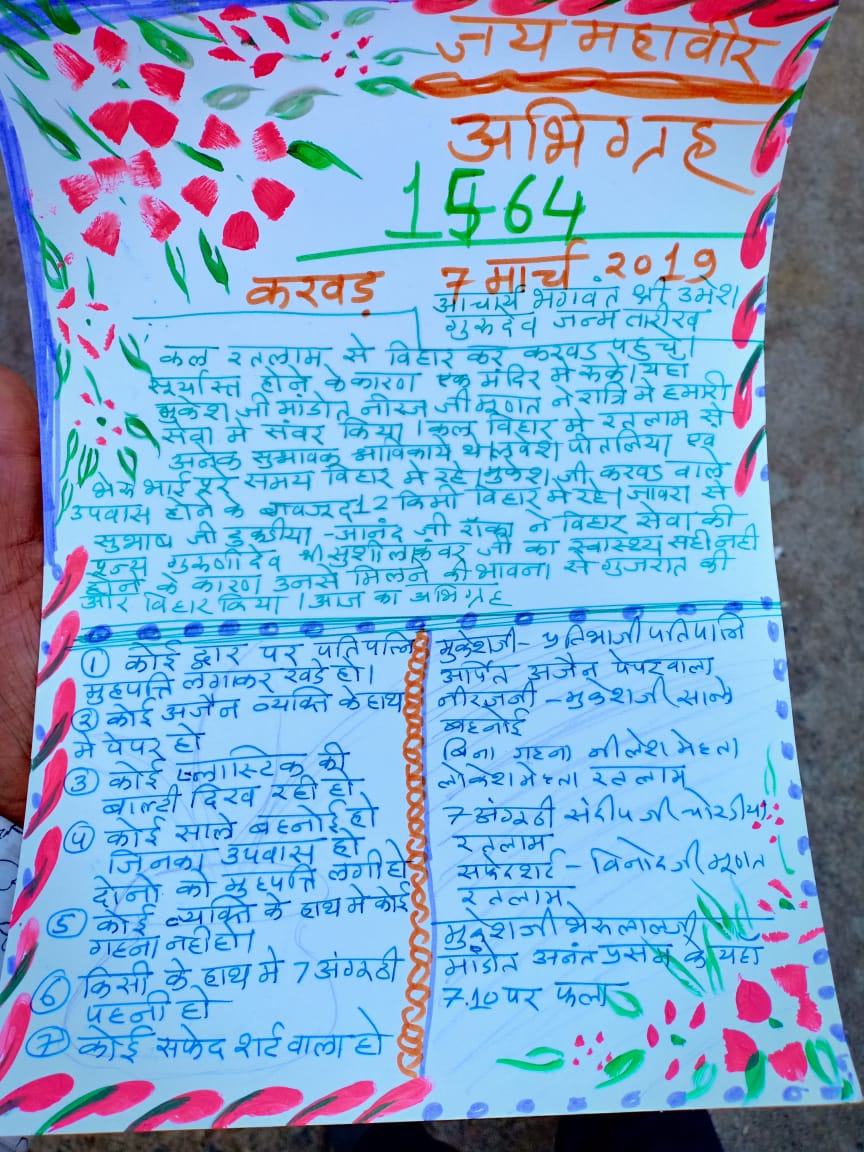 जय महावीर
अभिग्रह
1564
करवड़ 7 मार्च २०19
आचार्य भगवंत श्री उमेश
गुरुदेव जन्म तारीख
कल रतलाम से विहार कर करवड़ पहुचे।
सूर्यास्त होने के कारण एक मंदिर मे रुके। यहा
मुकेश जी मांडोत नीरज जी मूणत ने रात्रि मे हमारी
सेवा मे संवर किया। कल विहार मे रतलाम से
अनेक सुश्रावक श्राविकाये थे। लवेश पीतलिया एव
भेरु भाई पूरे समय विहार मे रहे। मुकेश जी करवड वाले
उपवास होने के बावजूद 12 किमी विहार मे रहे। जावरा से
सुभाष जी डुकडीया - आनंद जी रांका ने विहार सेवा की
गुरुणी देव श्री सुशीलाकंवर जी का स्वास्थ्य सही नही
होने के कारण उनसे मिलने की भावना से गुजरात की
और विहार किया। आज का अभिग्रह
① कोई द्वार पर पतिपत्नि
मुहपत्ति लगाकर खडे हो।
② कोई अजैन व्यक्ति के हाथ
मे पेपर हो
③ कोई प्लास्टिक की
बाल्टी दिख रही हो
④ कोई साले बहनोई हो
जिनका उपवास हो
दोनो को मुहपत्ति लगी हो
⑤ कोई व्यक्ति के हाथ मे कोई
गहना नही हो।
⑥ किसी के हाथ मे 7 अंगूठी
पहनी हो
⑦ कोई सफेद शर्ट वाला हो
मुकेशजी - प्रतिभाजी पतिपत्नि
अर्पित अजैन पेपरवाला
नीरजजी - मुकेशजी साले
बहनोई
बिना गहना नीलेश मेहता
लोकेश मेहता रतलाम
7 अंगूठी संदीप जी चोरडीया
रतलाम
सफेद शर्ट - विनोद जी मूणत
रतलाम
मुकेशजी भेरुलालजी
मांडोत अनंत प्रसन्न के यहाँ
7.10 पर फला